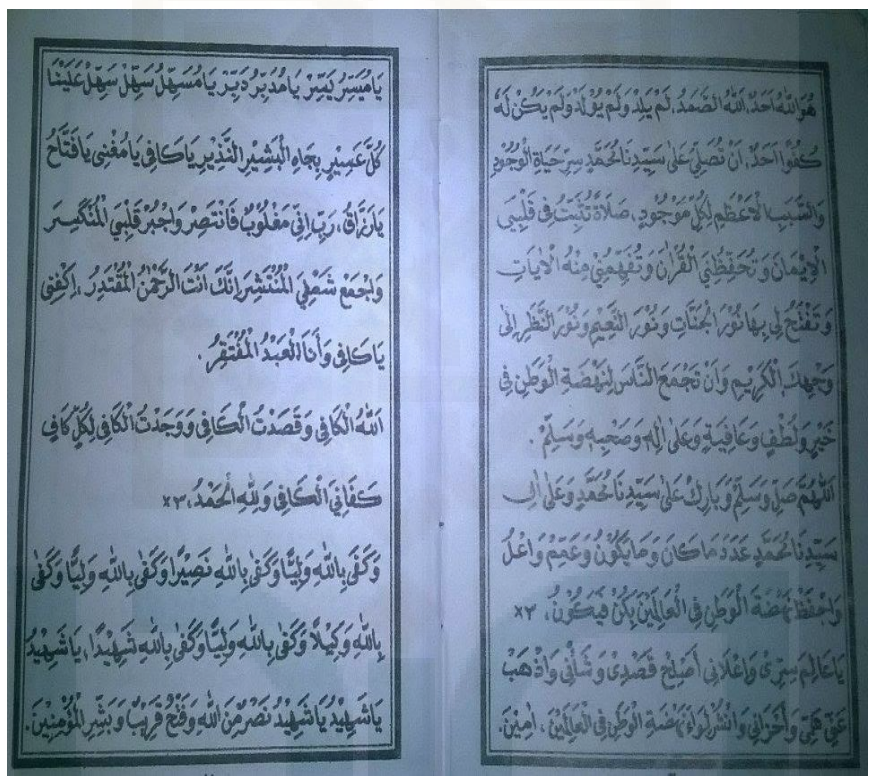 هُوَ اللهُ اَحَدٌ، اَللهُ الصَّمَدُ، لَمْ يَلِدْ وَلَمْ يُوْلَدْ وَلَمْ يَكُنْ لَهُ
كُفُوًا اَحَدٌ، اَنْ تُصَلِّيَ عَلٰى سَيِّدِنَا مُحَمَّدٍ سِرِّ حَيَاةِ الْوُجُوْدِ
وَالسَّبَبِ الْاَعْظَمِ لِكُلِّ مَوْجُوْدٍ، صَلَاةً تُثَبِّتُ فِى قَلْبِى
الْاِيْمَانَ وَتُحَفِّظُنِى الْقُرْاٰنَ وَتُفَهِّمُنِىْ مِنْهُ الْاٰيَاتِ
وَتَفْتَحُ لِى بِهَا نُوْرَ الْجَنَّاتِ وَنُوْرَ النَّعِيْمِ وَنُوْرَ النَّظَرِ اِلٰى
وَجْهِكَ الْكَرِيْمِ وَاَنْ تَجْمَعَ النَّاسَ لِنَهْضَةِ الْوَطَنِ فِى
خَيْرٍ وَلُطْفٍ وَعَافِيَةٍ وَعَلٰى اٰلِهِ وَصَحْبِهِ وَسَلِّمْ.
اَللّٰهُمَّ صَلِّ وَسَلِّمْ وَبَارِكْ عَلٰى سَيِّدِنَا مُحَمَّدٍ وَعَلٰى اٰلِ
سَيِّدِنَا مُحَمَّدٍ عَدَدَ مَا كَانَ وَمَا يَكُوْنُ وَعَمِّمْ وَاعْلُ
وَاحْفَظْ نَهْضَةَ الْوَطَنِ فِى الْعَالَمِيْنَ بِكُنْ فَيَكُوْنُ، ×٣
يَا عَالِمَ سِرِّىْ وَاِعْلَانِى اَصْلِحْ قَصْدِىْ وَشَأْنِى وَاذْهَبْ
عَنِّى هَمِّىْ وَأَحْزَانِىْ وَانْشُرْ لِوَاءَ نَهْضَةِ الْوَطَنِ فِى الْعَالَمِيْنَ، اٰمِيْنَ.
يَا مُيَسِّرُ يَسِّرْ يَا مُدَبِّرُ دَبِّرْ يَا مُسَهِّلُ سَهِّلْ سَهِّلْ عَلَيْنَا
كُلَّ عَسِيْرٍ بِجَاهِ الْبَشِيْرِ النَّذِيْرِ يَا كَافِى يَا مُغْنِى يَا فَتَّاحُ
يَا رَزَّاقُ، رَبِّ اِنِّى مَغْلُوْبٌ فَانْتَصِرْ وَاجْبُرْ قَلْبِيَ الْمُنْكَسِرَ
وَاجْمَعْ شَمْلِيَ الْمُنْتَشِرَ اِنَّكَ اَنْتَ الرَّحْمٰنُ الْمُقْتَدِرُ، اِكْفِنِى
يَا كَافِى وَأَنَا الْعَبْدُ الْمُفْتَقِرُ.
اَللهُ الْكَافِى وَقَصَدْتُ الْكَافِى وَوَجَدْتُ الْكَافِى لِكُلٍّ كَافٍ
كَفَانِيَ الْكَافِى وَلِلّٰهِ الْحَمْدُ، ×٣
وَكَفٰى بِاللهِ وَلِيًّا وَكَفٰى بِاللهِ نَصِيْرًا وَكَفٰى بِاللهِ وَلِيًّا وَكَفٰى
بِاللهِ وَكِيْلًا وَكَفٰى بِاللهِ وَلِيًّا وَكَفٰى بِاللهِ شَهِيْدًا، يَا شَهِيْدُ
يَا شَهِيْدُ يَا شَهِيْدُ نَصْرٌ مِنَ اللهِ وَفَتْحٌ قَرِيْبٌ وَبَشِّرِ الْمُؤْمِنِيْنَ.